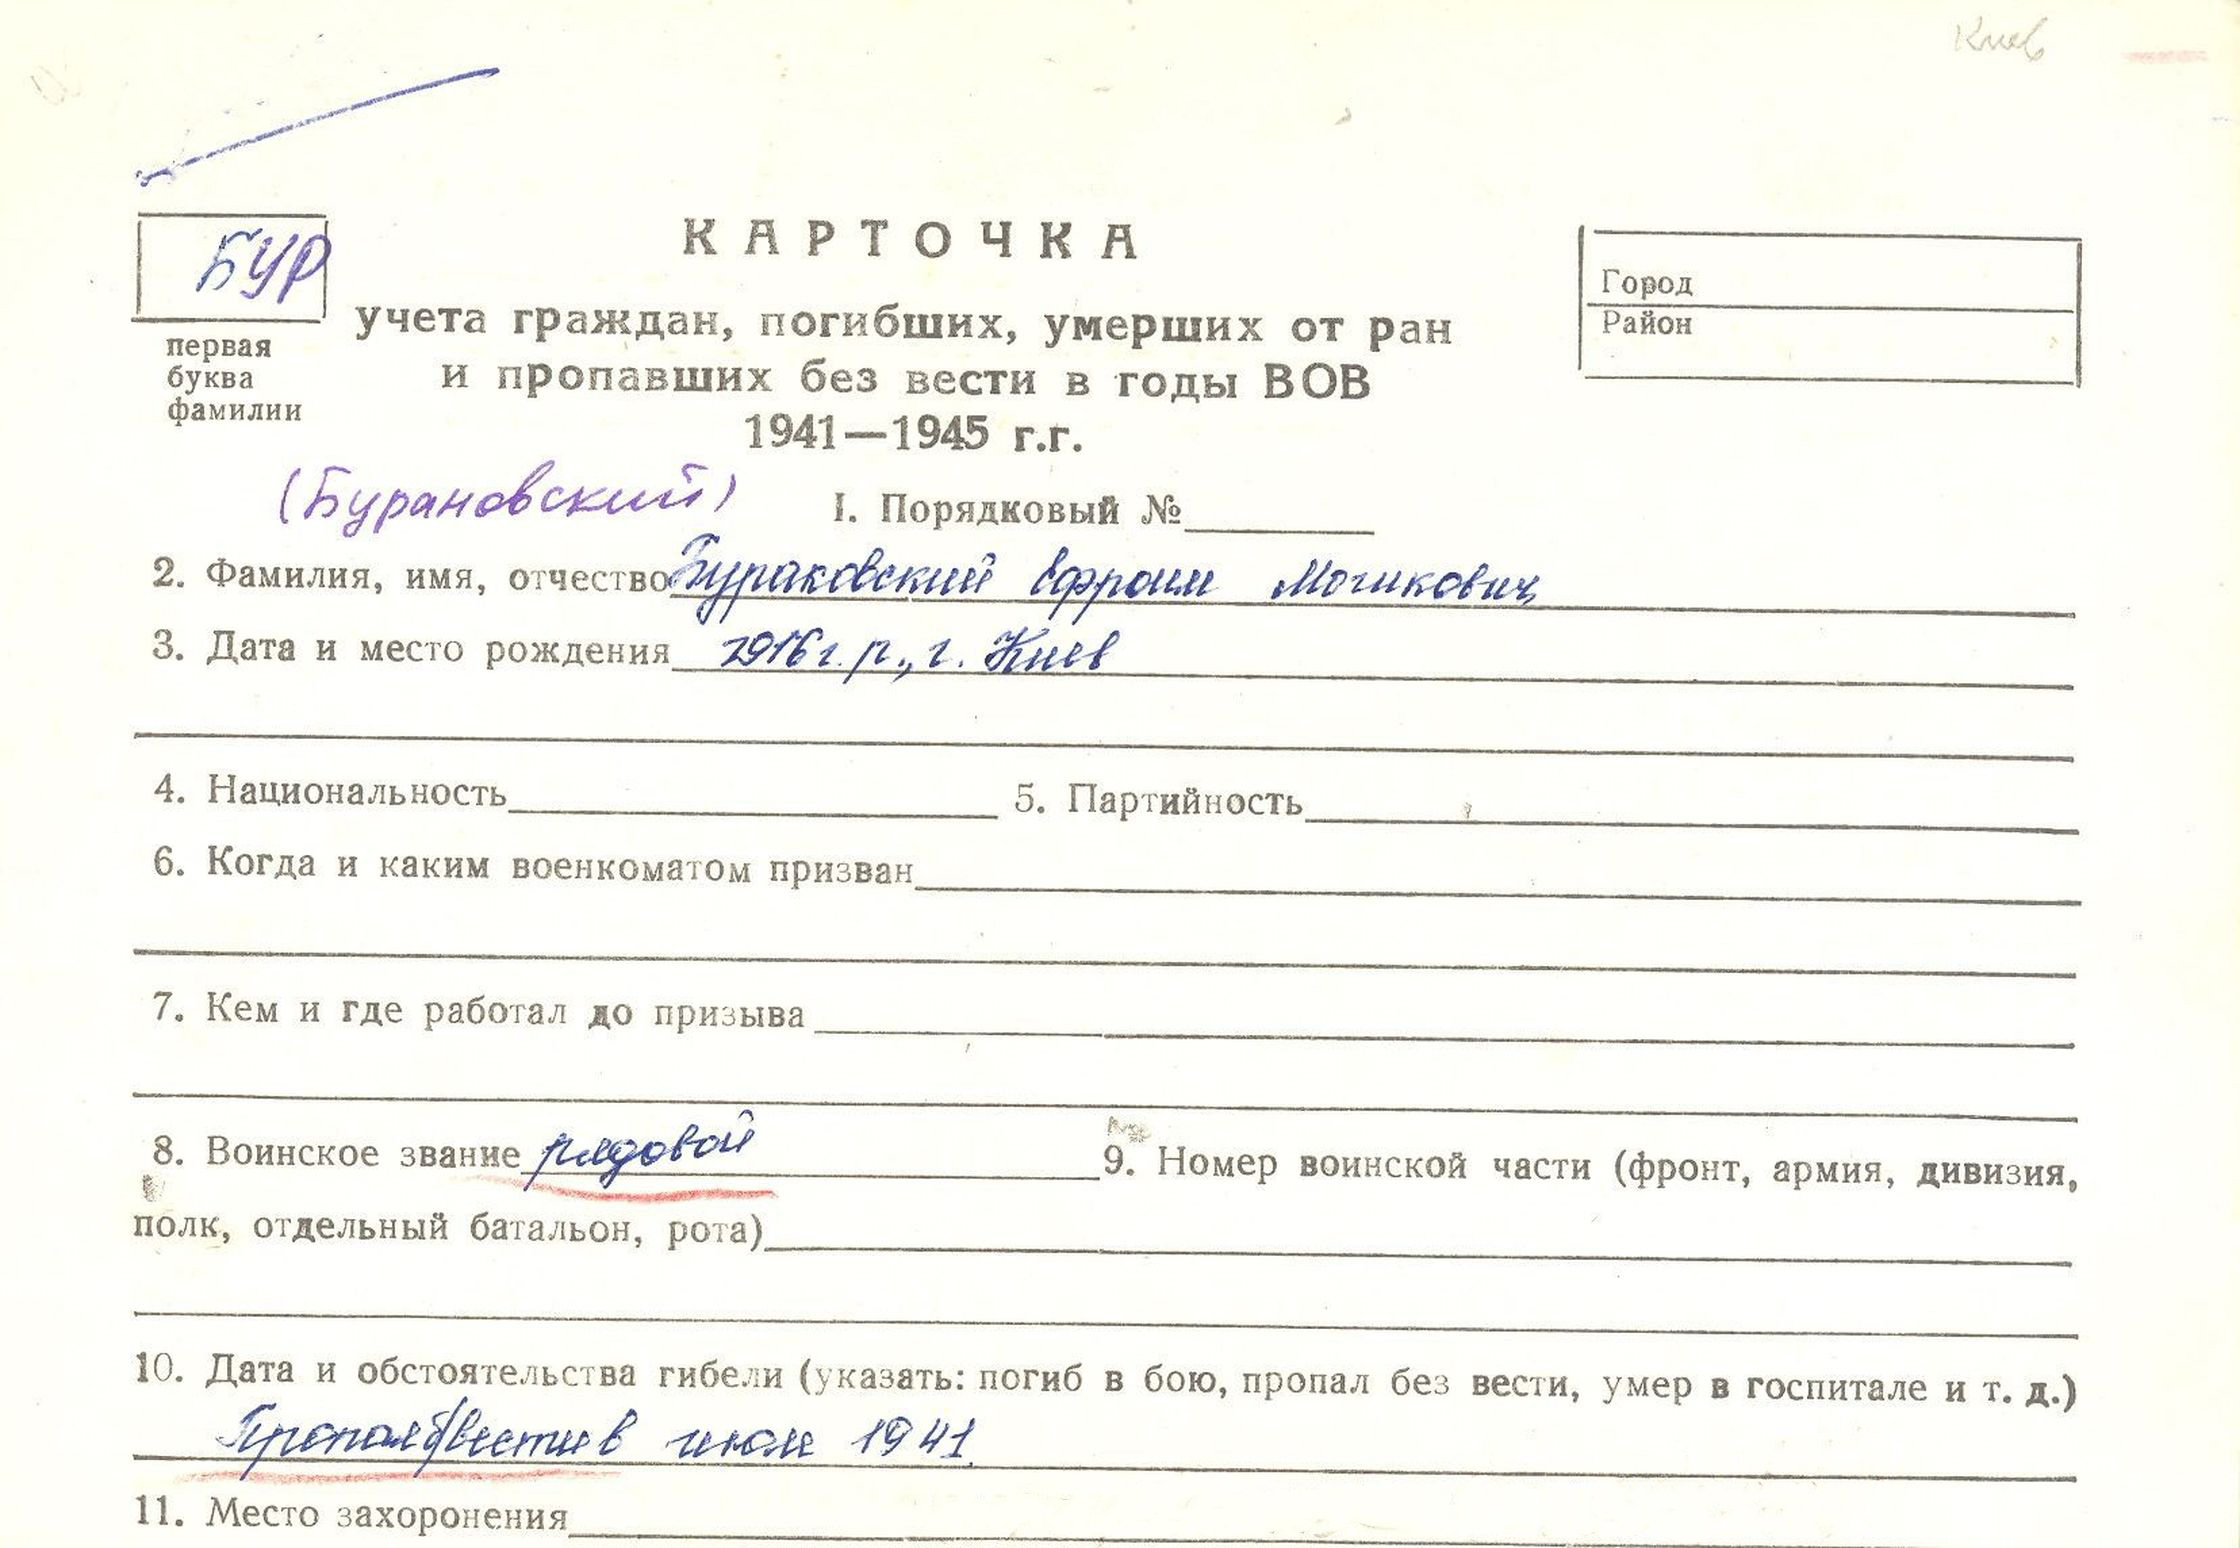 Киев
БУР
КАРТОЧКА
учета граждан, погибших, умерших от ран
и пропавших без вести в годы ВОВ
1941—1945 г.г.
Город
Район
первая
буква
фамилии
(Бурановский)
1. Порядковый №
2. Фамилия, имя, отчество Бураковский Ефроим Мошкович
3. Дата и место рождения 1916 г.р., г. Киев
4. Национальность 5. Партийность
6. Когда и каким военкоматом призван
7. Кем и где работал до призыва
8. Воинское звание рядовой 9. Номер воинской части (фронт, армия, дивизия,
полк, отдельный батальон, рота)
10. Дата и обстоятельства гибели (указать: погиб в бою, пропал без вести, умер в госпитале и т. д.)
Пропал б/вести в июле 1941
11. Место захоронения